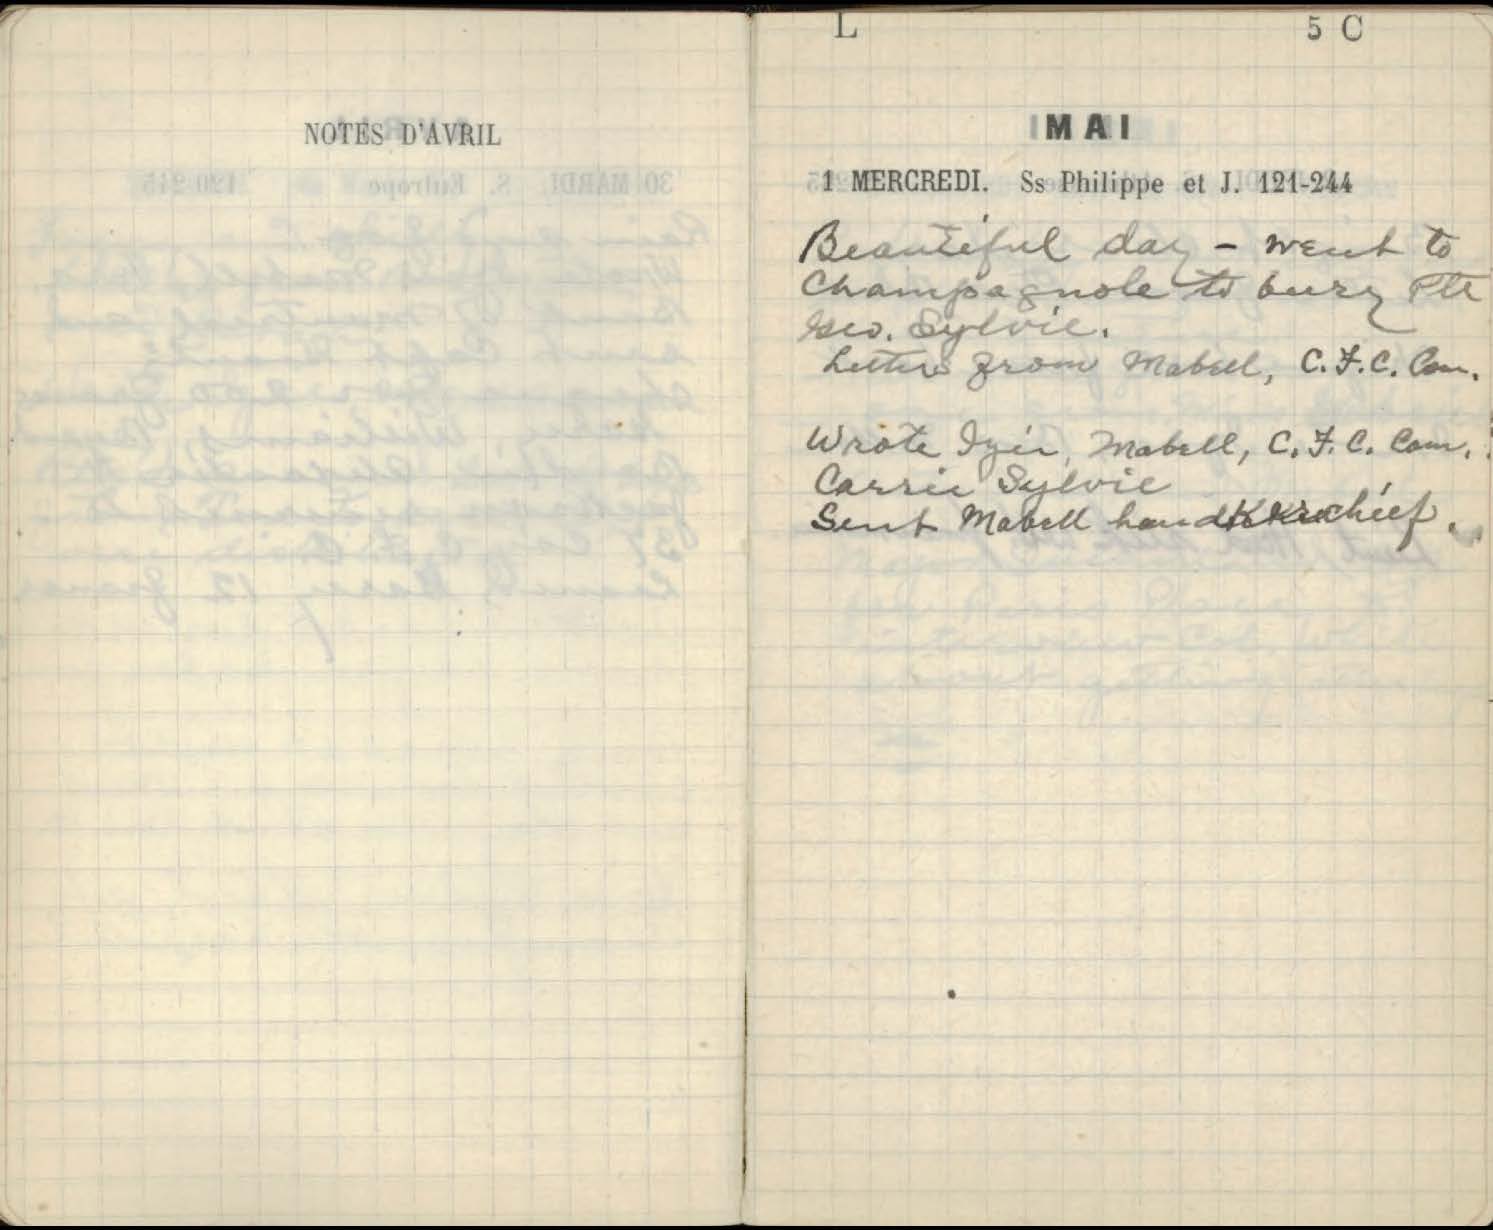 NOTES D'AVRIL
L 5 C
MAI
1 MERCREDI. Ss Philippe et J. 121-244
Beautiful day - went to
Champagnole to bury Pte
Geo. Sylvie.
Letters from Mabell, C.F.C. Com.
Wrote Mabell, C.F.C. Com.
Carrie Sylvie
Sent Mabell handkerchief.